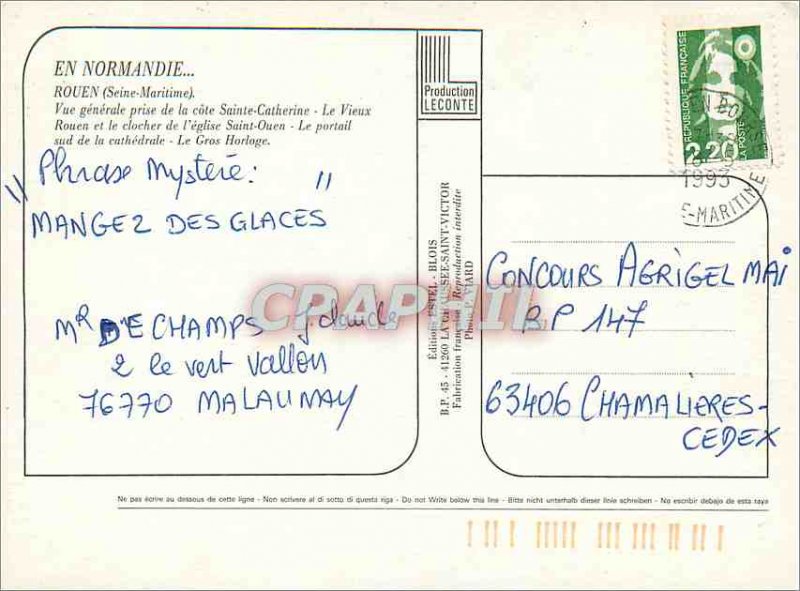 EN NORMANDIE...
ROUEN (Seine-Maritime).
Vue générale prise de la côte Sainte-Catherine - Le Vieux
Rouen et le clocher de l'église Saint-Ouen - Le portail
sud de la cathédrale - Le Gros Horloge.
"Phrase Mystère: "
MANGEZ DES GLACES
MR DECHAMPS J. claude
2 le vert vallon
76770 MALAUNAY
Production
LECONTE
Éditions ESTEL - BLOIS
B.P. 45 - 41260 LA CHAUSSÉE-SAINT-VICTOR
Fabrication française Reproduction interdite
Photo P. VIARD
CPAPHIL
RÉPUBLIQUE FRANÇAISE
2,20
LA POSTE
1993
E-MARITIME
CONCOURS AGRIGEL MAI
B.P 147
63406 CHAMALIÈRES-
CEDEX
Ne pas écrire au dessous de cette ligne - Non scrivere al di sotto di questa riga - Do not Write below this line - Bitte nicht unterhalb dieser linie schreiben - No escribir debajo de esta raya